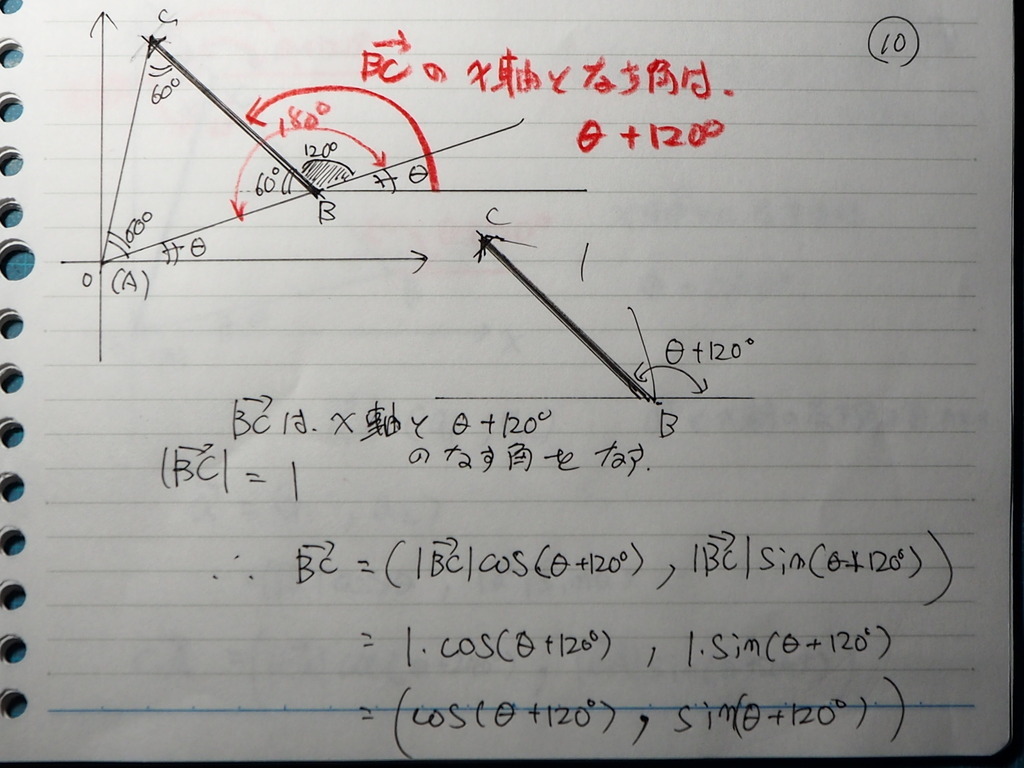 ⑩
C
BCの x軸となす角は.
θ+120°
60°
180°
120°
60°
θ
B
60°
θ
O (A)
C
1
θ+120°
B
BCは. x軸と θ+120°
のなす角をなす.
|BC| = 1
∴ BC = (|BC|cos(θ+120°), |BC|sin(θ+120°))
= 1.cos(θ+120°), 1.sin(θ+120°)
= (cos(θ+120°), sin(θ+120°))